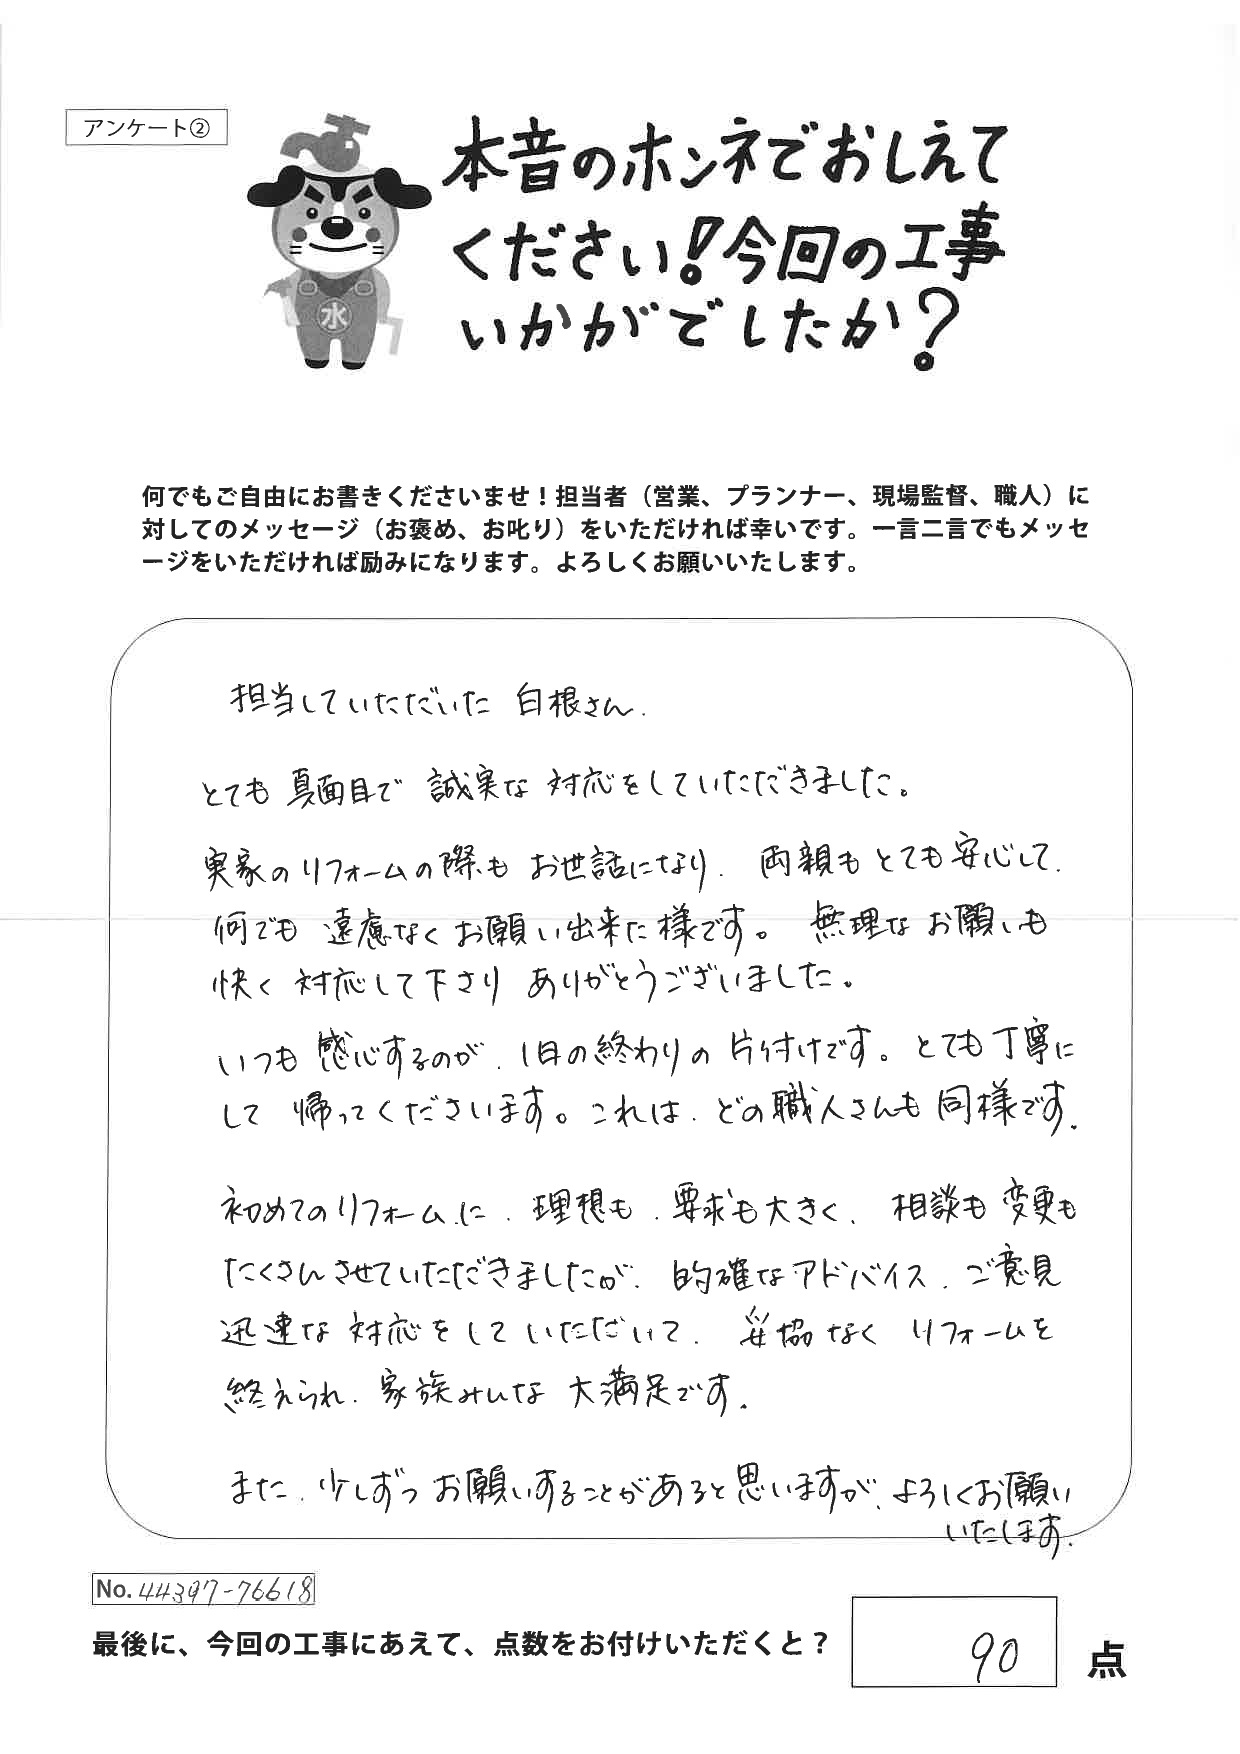 アンケート②
本音のホンネでおしえて
ください!今回の工事
いかがでしたか?
水
何でもご自由にお書きくださいませ!担当者(営業、プランナー、現場監督、職人)に
対してのメッセージ(お褒め、お叱り)をいただければ幸いです。一言二言でもメッセ
ージをいただければ励みになります。よろしくお願いいたします。
担当していただいた 白根さん、
とても 真面目で 誠実な 対応をしていただきました。
実家のリフォームの際も お世話になり、両親もとても安心して、
何でも 遠慮なくお願い出来た様です。 無理なお願いも
快く 対応して下さり ありがとうございました。
いつも 感心するのが、1日の終わりの 片付けです。とても丁寧に
して 帰ってくださいます。これは、どの職人さんも 同様です。
初めてのリフォームに、理想も、要求も大きく、相談も変更も
たくさんさせていただきましたが、的確なアドバイス、ご意見
迅速な 対応をしていただいて、妥協なく リフォームを
終えられ、家族みんな 大満足です。
また、少しずつお願いすることがあると思いますが、よろしくお願い
いたします。
No.44397-76618
最後に、今回の工事にあえて、点数をお付けいただくと? 90 点